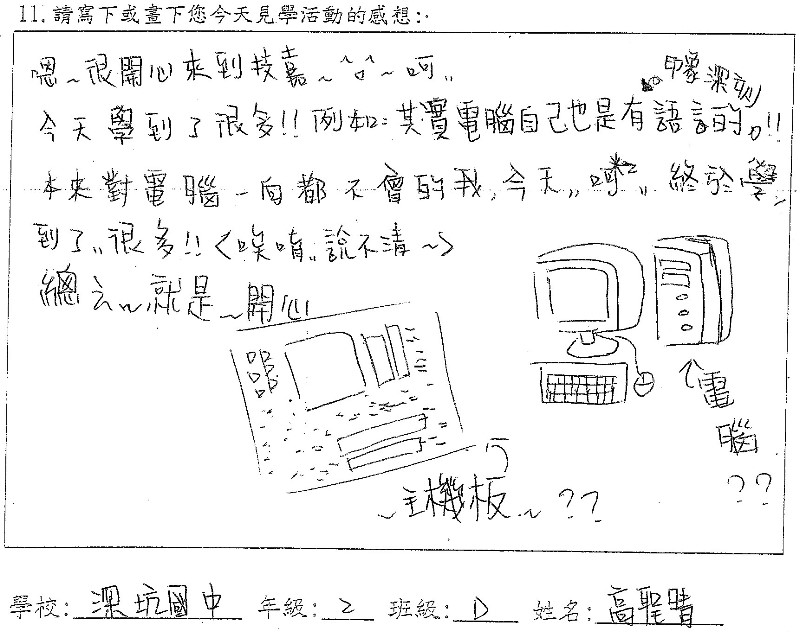 11. 請寫下或畫下您今天見學活動的感想:
嗯~很開心來到技嘉~^o^~呵..
印象深刻
今天學到了很多!!例如:其實電腦自己也是有語言的。!!
本來對電腦一向都不會的我,今天,,呵,,終於學
到了,,很多!!<唉唷..說不清~>
總之~就是~開心
電腦??
~主機板~??
學校:深坑國中 年級:2 班級:D 姓名:高聖晴